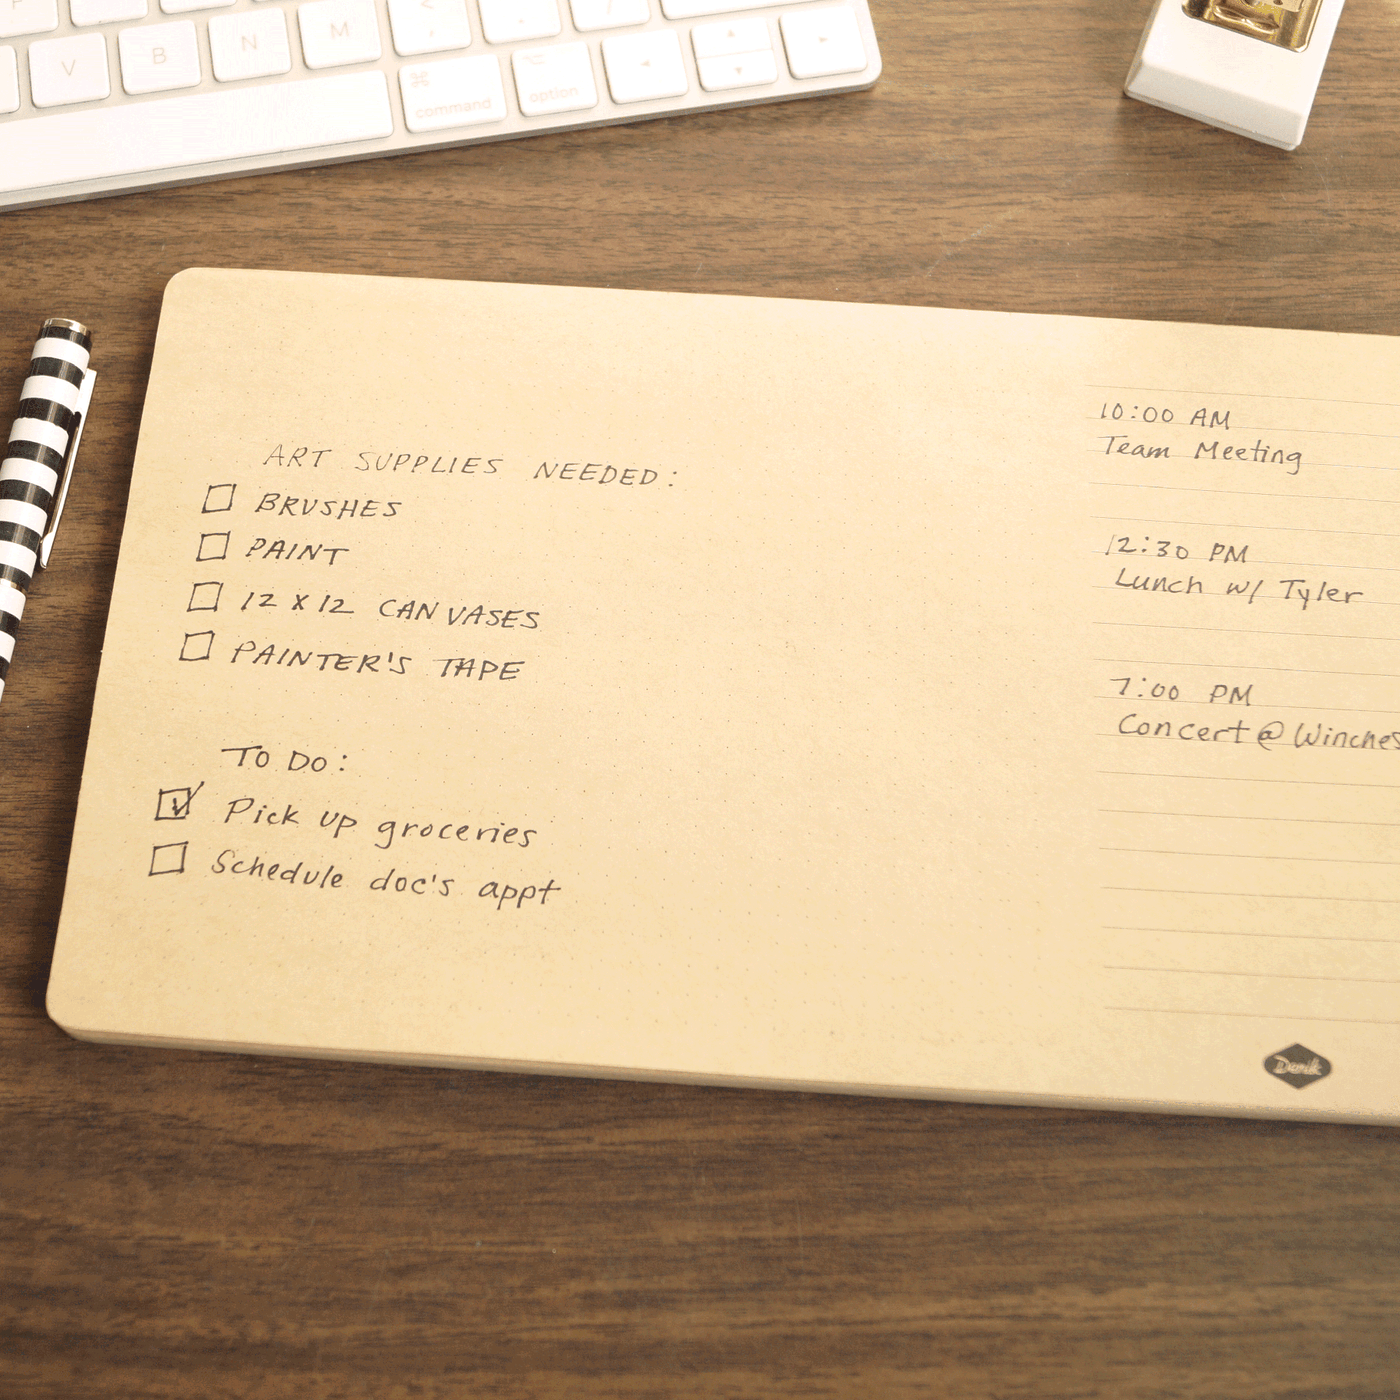 V
B
N
M
command
option
ART SUPPLIES NEEDED:
BRUSHES
PAINT
12 X 12 CANVASES
PAINTER'S TAPE
TO DO:
Pick up groceries
Schedule doc's appt
10:00 AM
Team Meeting
12:30 PM
Lunch w/ Tyler
7:00 PM
Concert @ Winches
Denik